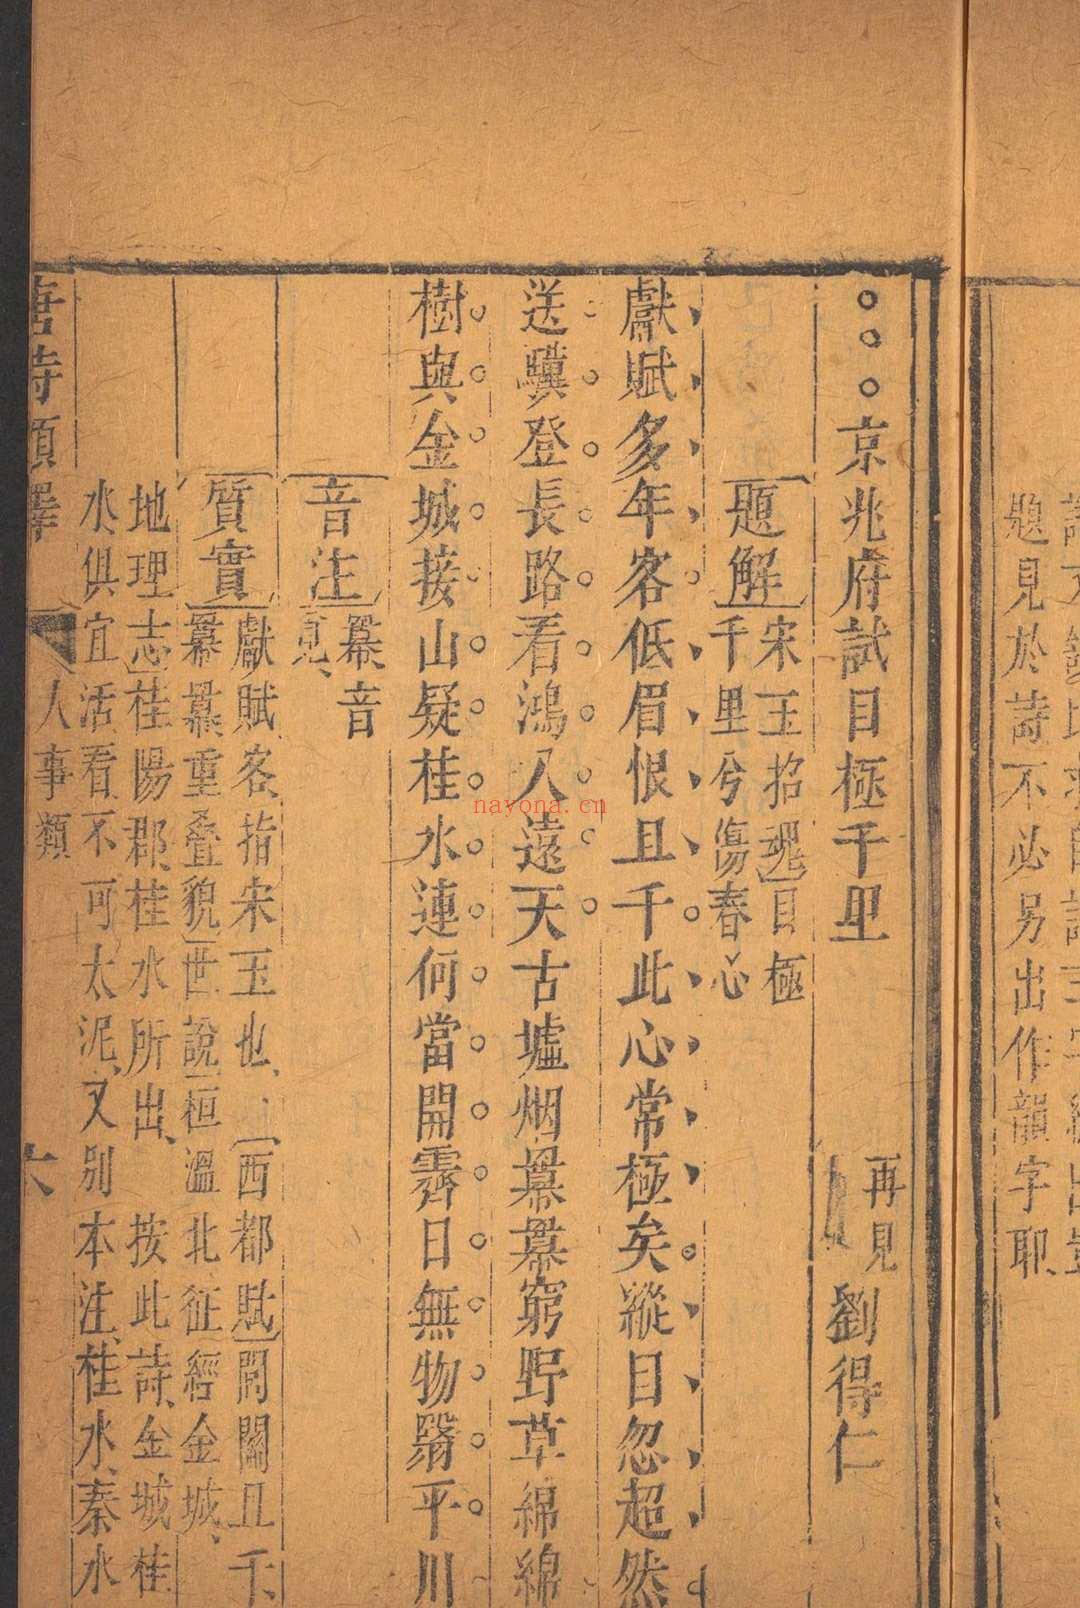 題見於詩不必另出作韻字耶
京兆府試目極千里 再見 劉得仁
題解 宋玉招魂目極
千里兮傷春心
獻賦多年客低眉恨且千此心常極矣縱目忽超然
送驥登長路看鴻入遠天古墟烟羃羃窮野草綿綿
樹與金城接山疑桂水連何當開霽日無物翳平川
音注 羃音
覓
質實 獻賦客指宋玉也西都賦閈閣且千
羃羃重疊貌世說桓溫北征經金城
地理志桂陽郡桂水所出 按此詩金城桂
水俱宜活看不可太泥又別本注桂水秦水
唐詩類釋 人事類 六
nayona.cn